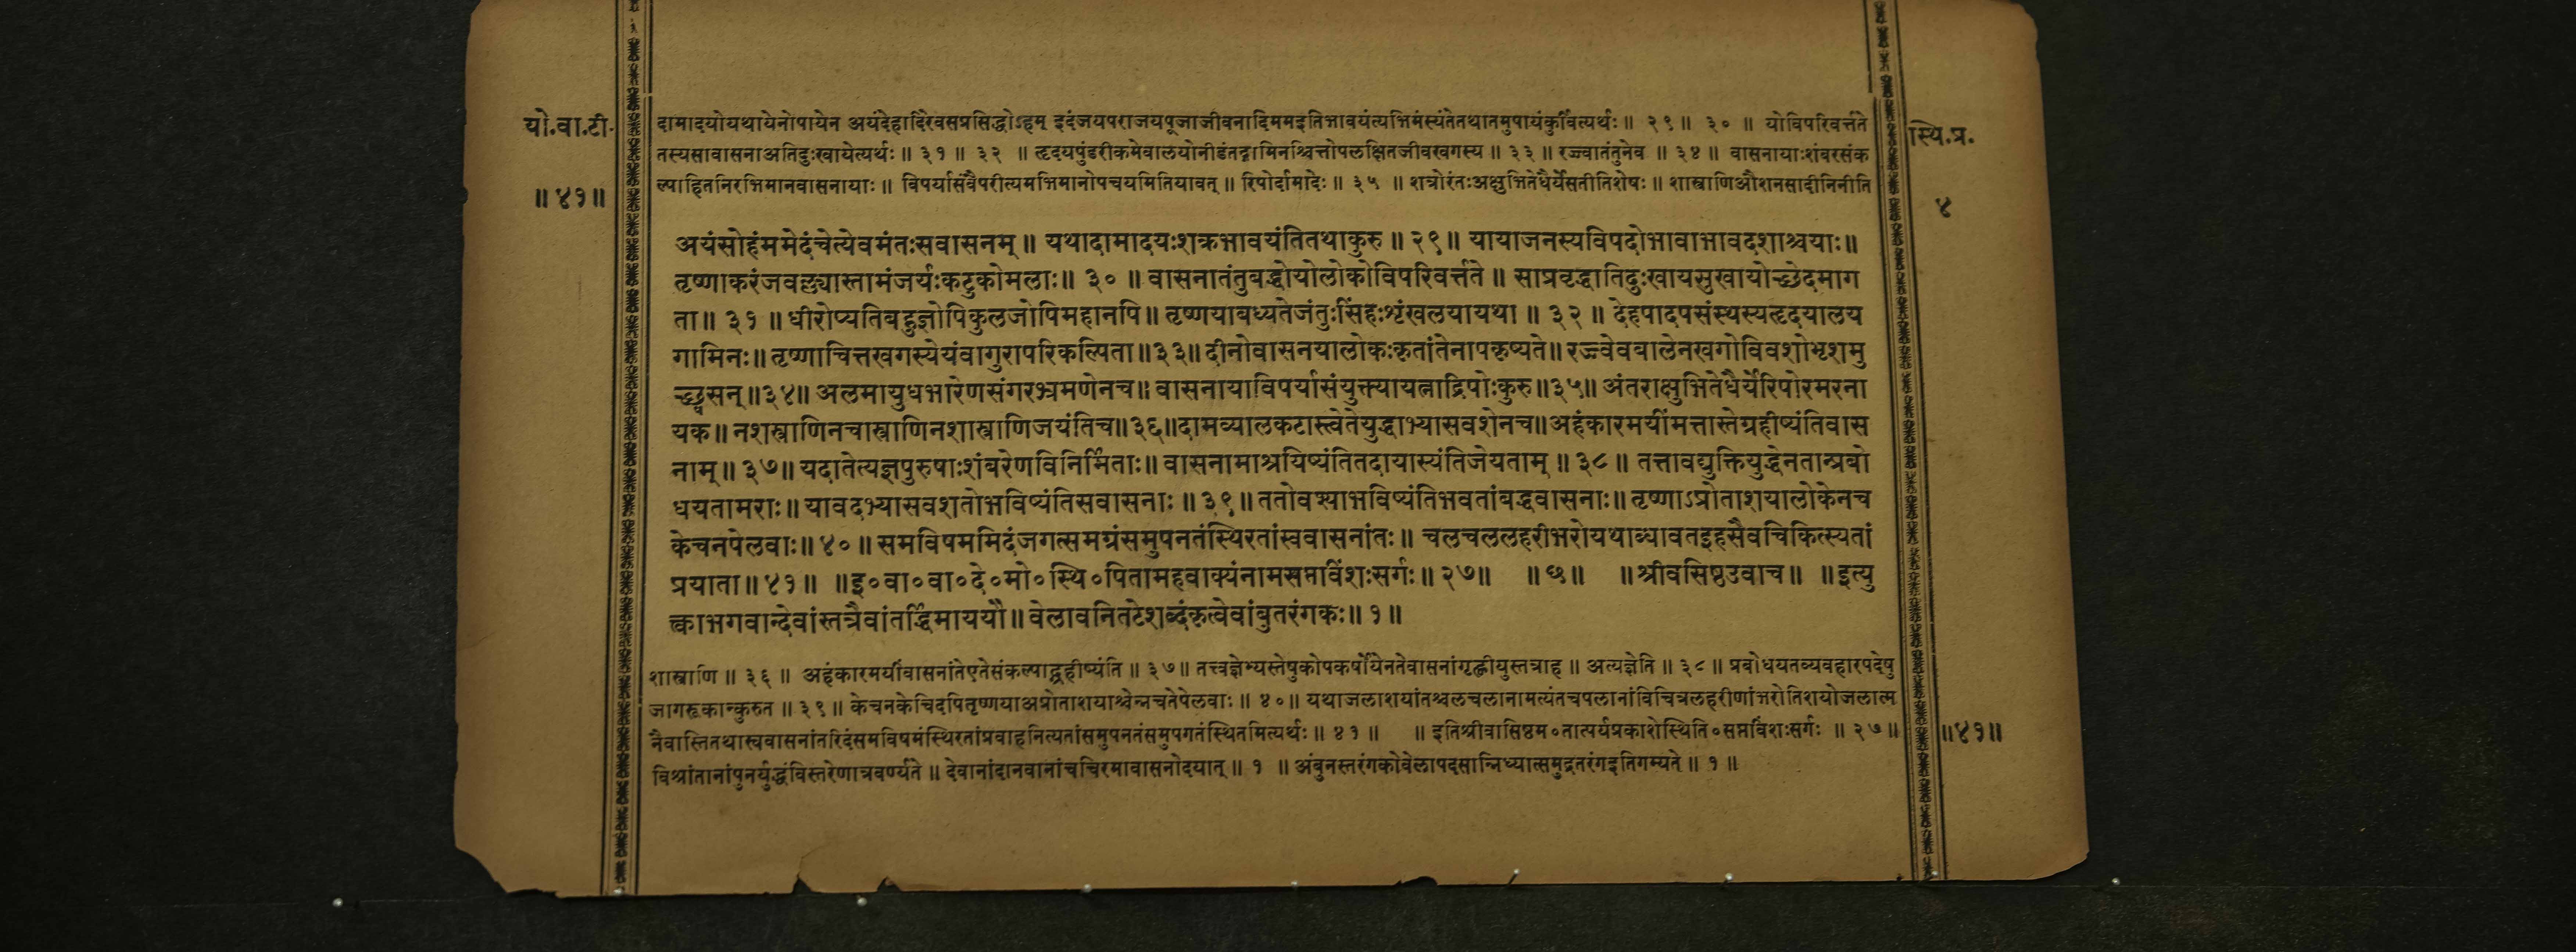 यो.वा.टी.
॥ ४१॥
स्थि.प्र.
४
दामादयोयथायेनोपायेन अयंदेहादिरेवसप्रसिद्धोऽहम् इदंजयपराजयपूजाजीवनादिममइतिभावयंत्यभिमंस्यंतेतथातमुपायंकुर्वित्यर्थः ॥ २९ ॥ ३० ॥ योविपरिवर्त्तते
तस्यसावासनाअतिदुःखायेत्यर्थः ॥ ३१ ॥ ३२ ॥ हृदयपुंडरीकमेवालयोनीडंतद्गामिनश्चित्तोपलक्षितजीवखगस्य ॥ ३३ ॥ रज्ज्वातंतुनेव ॥ ३४ ॥ वासनायाःशंबरसंक
ल्पाहितनिरभिमानवासनायाः ॥ विपर्यासंवैपरीत्यमभिमानोपचयमितियावत् ॥ रिपोर्दामादेः ॥ ३५ ॥ शत्रोरंतःअक्षुभितेधैर्येसतीतिशेषः ॥ शास्त्राणिऔशनसादीनिनीति
अयंसोहंममेदंचेत्येवमंतःसवासनम् ॥ यथादामादयःशक्रभावयंतितथाकुरु ॥ २९ ॥ यायाजनस्यविपदोभावाभावदशाश्चयाः ॥
तृष्णाकरंजवल्ल्यास्तामंजर्यःकटुकोमलाः ॥ ३० ॥ वासनातंतुबद्धोयोलोकोविपरिवर्त्तते ॥ साप्रवृद्धातिदुःखायसुखायोच्छेदमाग
ता ॥ ३१ ॥ धीरोप्यतिबहुज्ञोपिकुलजोपिमहानपि ॥ तृष्णयाबध्यतेजंतुःसिंहःशृंखलयायथा ॥ ३२ ॥ देहपादपसंस्थस्यहृदयालय
गामिनः ॥ तृष्णाचित्तखगस्येयंवागुरापरिकल्पिता ॥३३॥ दीनोवासनयालोकःकृतांतेनापकृष्यते ॥ रज्ज्वेवबालेनखगोविवशोभृशमु
च्छ्वसन् ॥३४॥ अलमायुधभारेणसंगरभ्रमणेनच ॥ वासनायाविपर्यासंयुक्त्यायत्नाद्रिपोःकुरु ॥३५॥ अंतराक्षुभितेधैर्येरिपोरमरना
यक ॥ नशस्त्राणिनचास्त्राणिनशास्त्राणिजयंतिच ॥३६॥ दामव्यालकटास्त्वेतेयुद्धाभ्यासवशेनच ॥ अहंकारमयींमत्तास्तेग्रहीष्यंतिवास
नाम् ॥ ३७॥ यदातेत्यज्ञपुरुषाःशंबरेणविनिर्मिताः ॥ वासनामाश्रयिष्यंतितदायास्यंतिजेयताम् ॥ ३८ ॥ तत्तावद्युक्तियुद्धेनतान्प्रबो
धयतामराः ॥ यावदभ्यासवशतोभविष्यंतिसवासनाः ॥ ३९ ॥ ततोवश्याभविष्यंतिभवतांबद्धवासनाः ॥ तृष्णाऽप्रोताशयालोकेनच
केचनपेलवाः ॥ ४० ॥ समविषममिदंजगत्समग्रंसमुपनतंस्थिरतांस्ववासनांतः ॥ चलचललहरीभरोयथाब्धावतइहसैवचिकित्स्यतां
प्रयाता ॥ ४१ ॥ ॥ इ०वा०वा०दे०मो०स्थि०पितामहवाक्यंनामसप्तविंशःसर्गः ॥ २७॥ ॥ छ॥ ॥ श्रीवसिष्ठउवाच ॥ ॥ इत्यु
त्क्वाभगवान्देवांस्तत्रैवांतर्द्धिमाययौ ॥ वेलावनितटेशब्दंकृत्वेवांबुतरंगकः ॥ १ ॥
शास्त्राणि ॥ ३६ ॥ अहंकारमयींवासनांतेएतेसंकल्पाद्ग्रहीष्यंति ॥ ३७॥ तत्त्वज्ञेभ्यस्तेषुकोपकर्षोयेनतेवासनांगृह्णीयुस्तत्राह ॥ अत्यज्ञेति ॥ ३८ ॥ प्रबोधयतव्यवहारपदेषु
जागरूकान्कुरुत ॥ ३९ ॥ केचनकेचिदपितृष्णयाअप्रोताशयाश्चेन्नचतेपेलवाः ॥ ४० ॥ यथाजलाशयांतश्चलचलानामत्यंतचपलानांविचित्रलहरीणांभरोतिशयोजलात्म
नैवास्तितथास्ववासनांतरिदंसमविषमंस्थिरतांप्रवाहनित्यतांसमुपनतंसमुपगतंस्थितमित्यर्थः ॥ ४१ ॥ ॥ इतिश्रीवासिष्ठम०तात्पर्यप्रकाशेस्थिति०सप्तविंशःसर्गः ॥ २७ ॥
विश्रांतानांपुनर्युद्धंविस्तरेणात्रवर्ण्यते ॥ देवानांदानवानांचचिरमावासनोदयात् ॥ १ ॥ अंबुनस्तरंगकोवेलापदसान्निध्यात्समुद्रतरंगइतिगम्यते ॥ १ ॥
॥४१॥